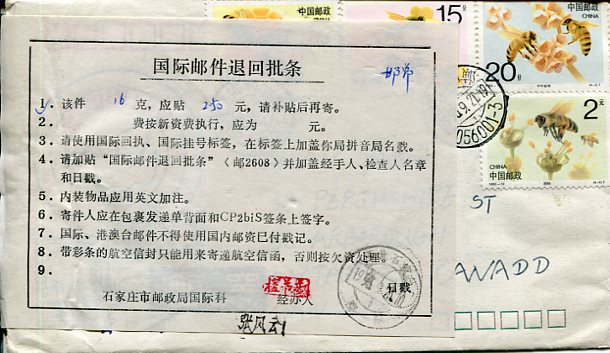 国际邮件退回批条
1. 该件 16 克，应贴 250 元，请补贴后再寄。
2. 费按新资费执行，应为 元。
3. 请使用国际回执、国际挂号标签，在标签上加盖你局拼音局名戳。
4. 请加贴“国际邮件退回批条”（邮2608）并加盖经手人、检查人名章
和日戳。
5. 内装物品应用英文加注。
6. 寄件人应在包裹发递单背面和CP2biS签条上签字。
7. 国际、港澳台邮件不得使用国内邮资已付戳记。
8. 带彩条的航空信封只能用来寄递航空信函，否则按欠资处理
9.
石家庄市邮政局国际科 经办人 日戳
15
中国邮政
中国邮政
CHINA
20分
2元
CHINA
中国邮政
056001-3
ST